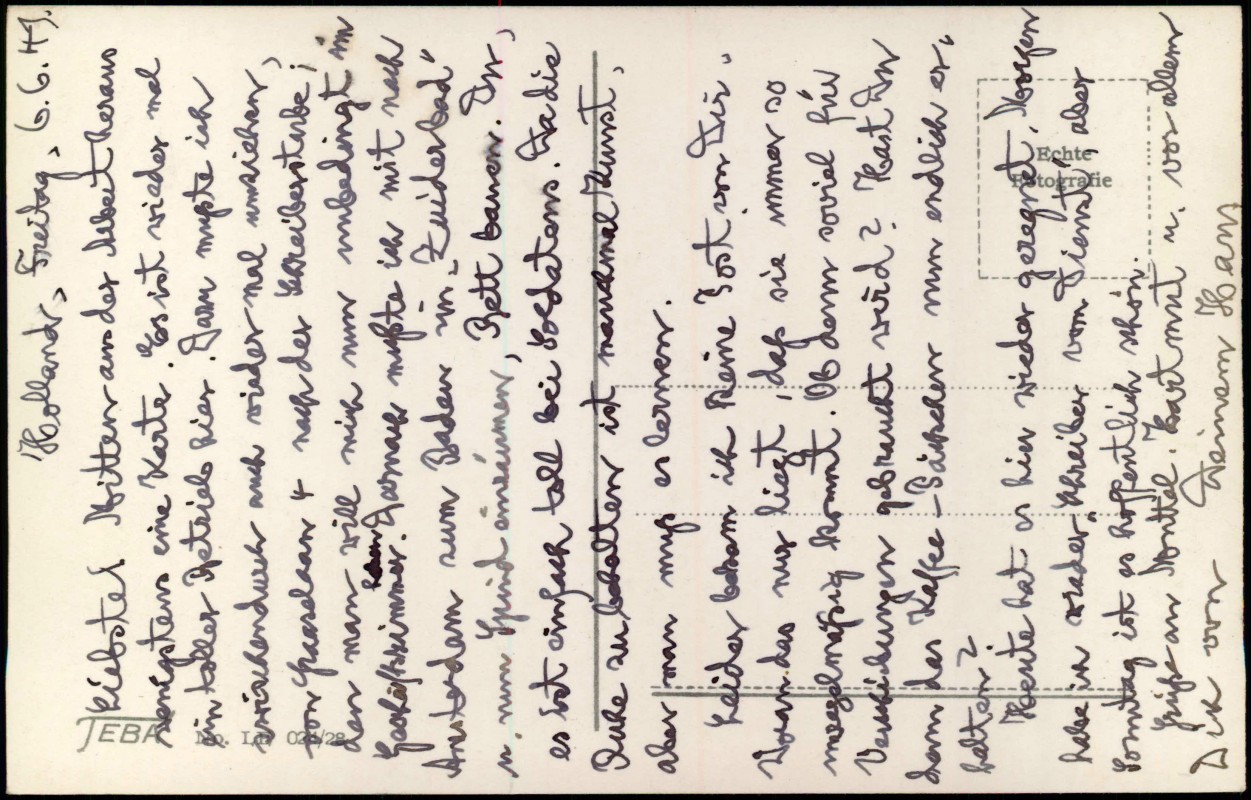 Holland, Freitag, 6.6.41.
Liebste! Mitten aus der Arbeit heraus
wenigstens eine Karte. Es ist wieder mal
ein toller Betrieb hier. Dann mußte ich
zwischendurch auch wieder mal umziehen,
von Haarlem + nach der Schreiberstube;
denn man will mich nun unbedingt im
haben
Geschäftszimmer. Danach mußte ich mit nach
Amsterdam zum Baden ins „Zuiderbad"
u. nun Spind einräumen, Bett bauen. Du,
es ist einfach toll bei Soldatens. Da die
Ruhe zu behalten ist manchmal Kunst,
aber man muß es lernen.
Leider bekam ich keine Post von Dir.
Woran das nur liegt, daß sie immer so
unregelmäßig kommt. Ob denn soviel für
gebraucht wird? Hast Du
denn das Kaffee-Päckchen nun endlich er-
halten?
Heute hat es hier wieder geregnet. Morgen
habe ich wieder „Schreiber vom Dienst", aber
Sonntag ist es hoffentlich schön.
Grüße an Mutti u. vor allem
Dich von Deinem Hans
Echte
Fotografie
TEBA
No.